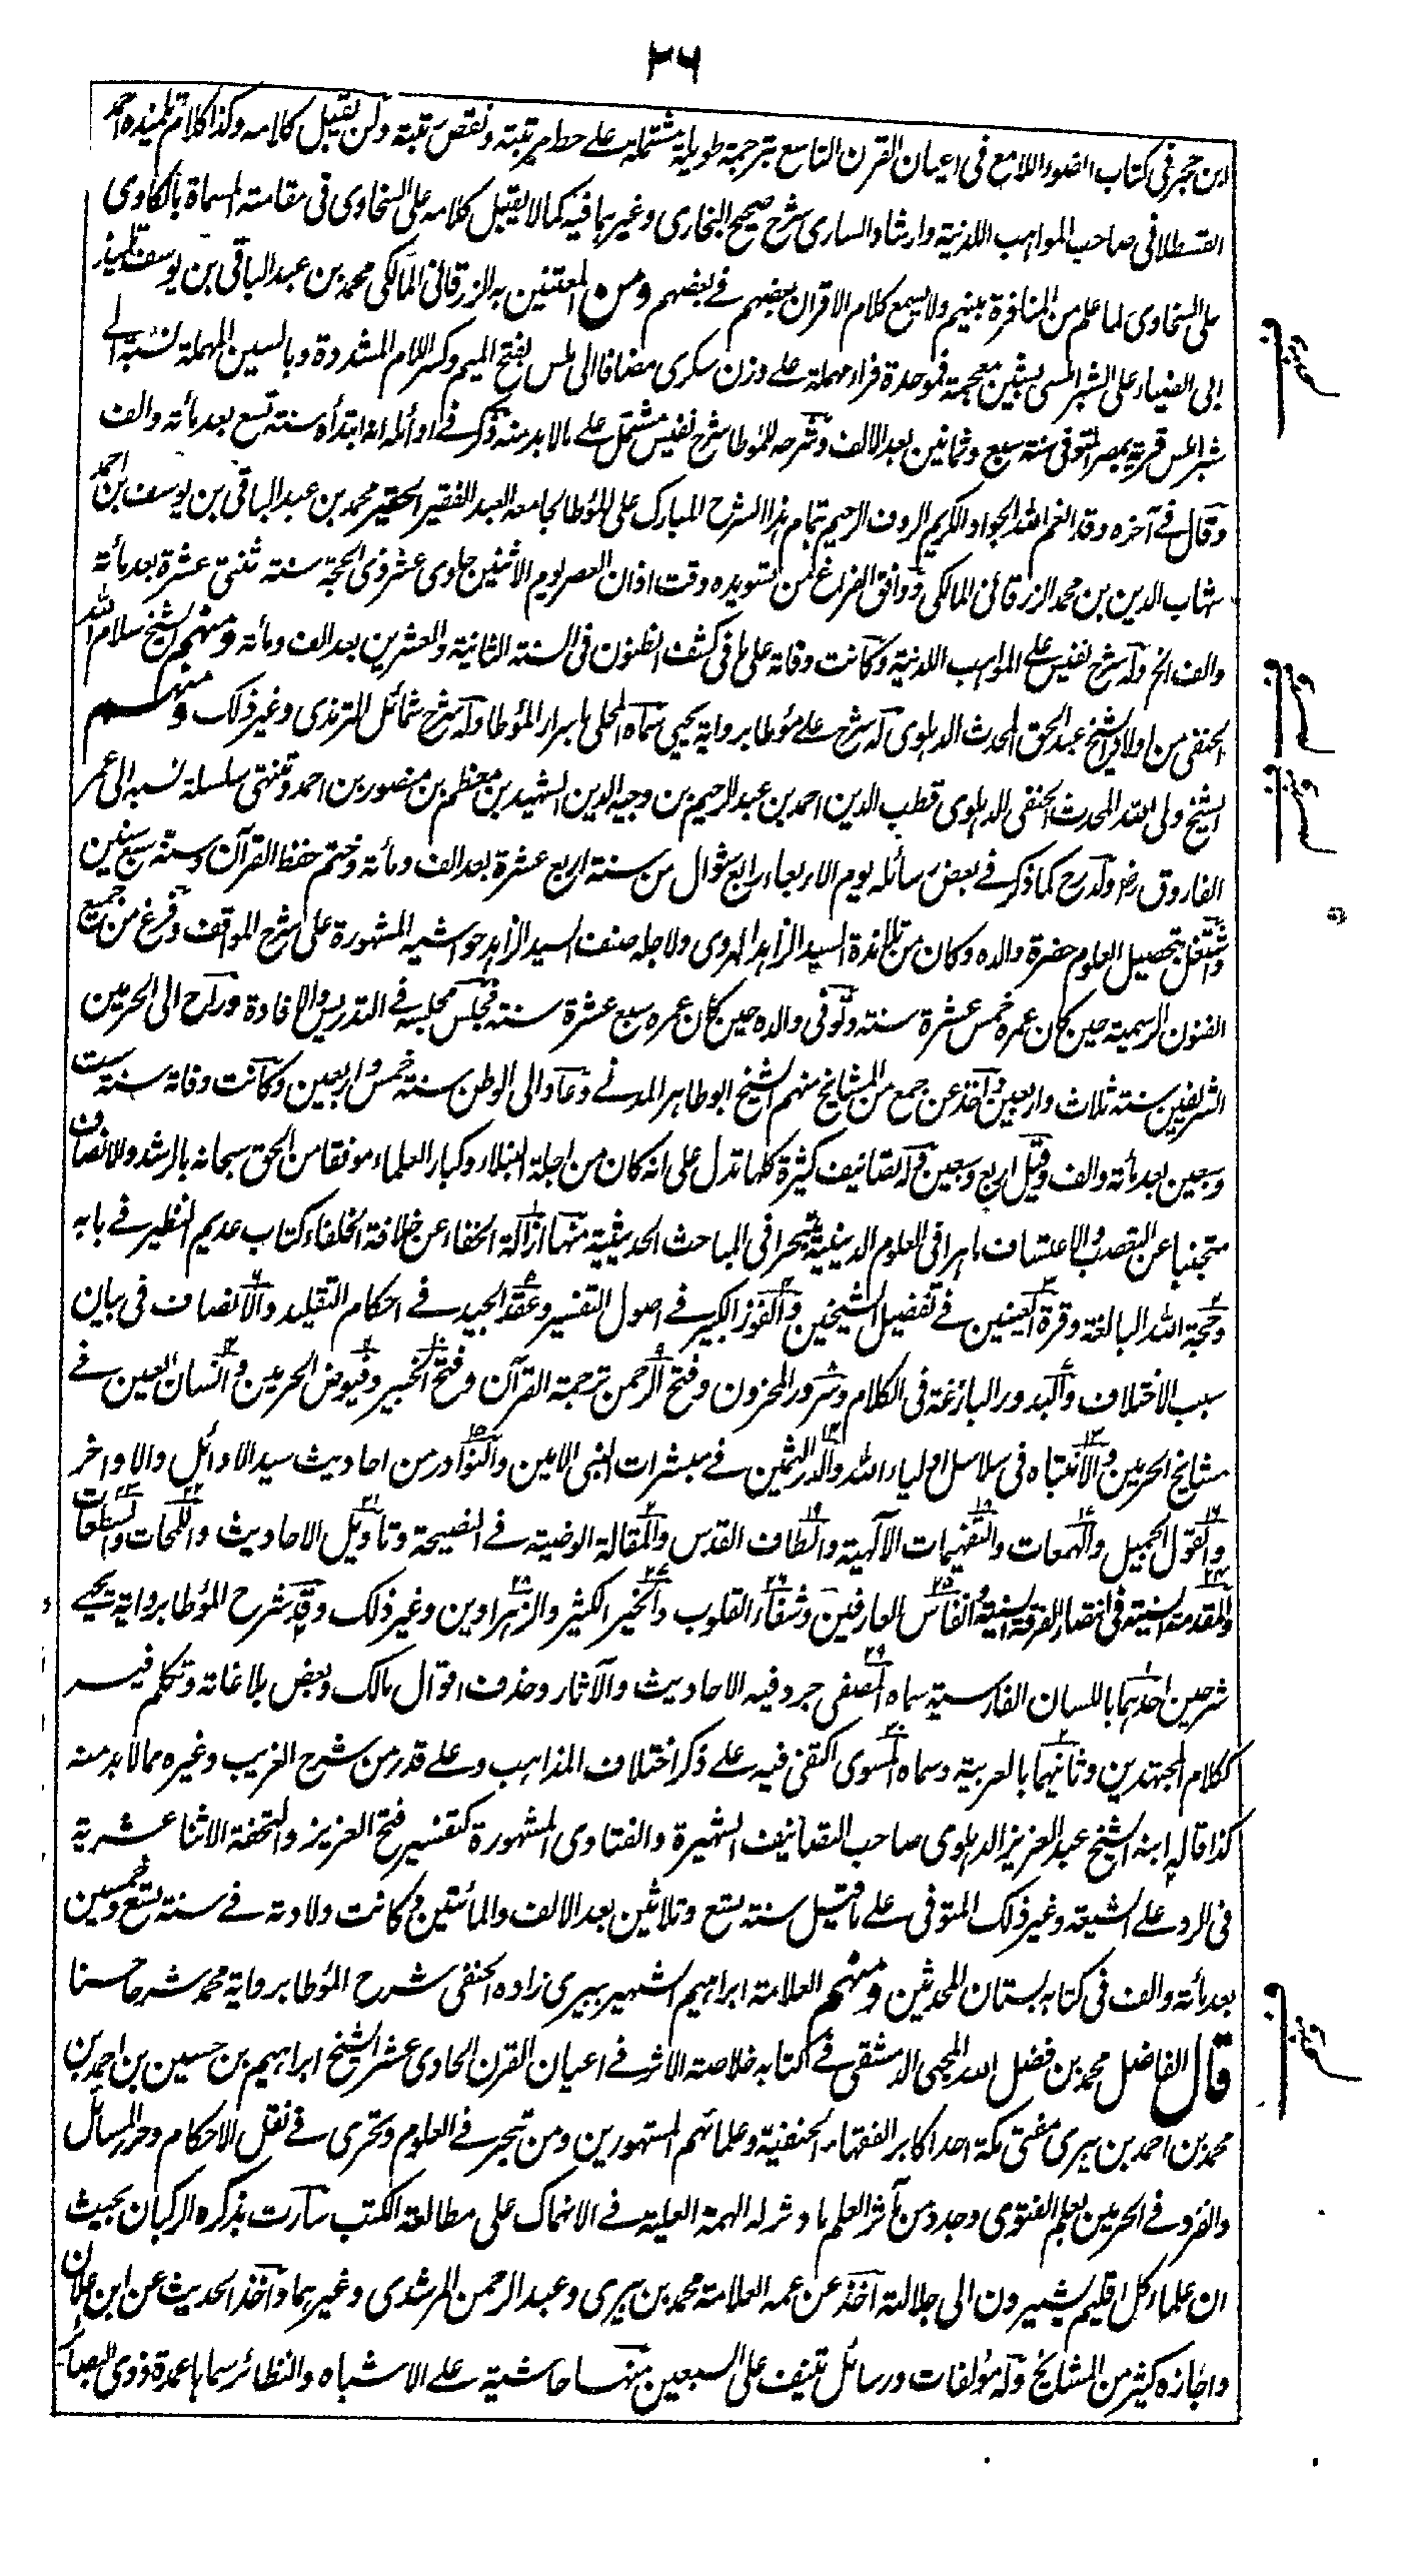 ٢٦
ابن حجر في كتاب الضوء اللامع في اعيان القرن التاسع بترجمة طويلة مشتملة على حط مرتبته ونقص رتبته ولن يقبل كلامه وكذا كلام تلميذه احمد
القسطلاني صاحب المواهب اللدنية وارشاد الساري شرح صحيح البخاري وغيرهما فيه كما لا يقبل كلامه على السخاوي في مقامته المسماة بالكاوي
على السخاوي لما علم من المنافرة بينهم ولا يسمع كلام الاقران بعضهم في بعضهم ومن المعتنين به الزرقاني المالكي محمد بن عبد الباقي بن يوسف تلميذ
ابي الضياء علي الشبراملسي بشين معجمة فموحدة فراء مهملة على وزن سكرى مضافا الى ملس بفتح الميم وكسر اللام المشددة وبالسين المهملة نسبة الى
شبراملس قرية بمصر المتوفى سنة سبع وثمانين بعد الالف وشرحه للموطا شرح نفيس مشتمل على ما لا بد منه ذكر في اوائله انه ابتدأه سنة تسع بعد مائة والف
وقال في آخره وقد انعم الله الجواد الكريم الرؤف الرحيم بتمام هذا الشرح المبارك على الموطا لجامعه العبد الفقير الحقير محمد بن عبد الباقي بن يوسف بن احمد
شهاب الدين بن محمد الزرقاني المالكي ووافق الفراغ من تسويده وقت اذان العصر يوم الاثنين حادي عشر ذي الحجة سنة ثنتي عشرة بعد مائة
والف الخ وله شرح نفيس على المواهب اللدنية وكانت وفاته على ما في كشف الظنون في السنة الثانية والعشرين بعد الف ومائة ومنهم الشيخ سلام الله
الحنفي من اولاد الشيخ عبد الحق المحدث الدهلوي له شرح على موطا برواية يحيى سماه المحلى باسرار الموطا وله شرح شمائل الترمذي وغير ذلك ومنهم
الشيخ ولي الله المحدث الحنفي الدهلوي قطب الدين احمد بن عبد الرحيم بن وجيه الدين الشهيد بن معظم بن منصور بن احمد وتنتهي سلسلة نسبه الى عمر
الفاروق رض ولد رح كما ذكر في بعض رسائله يوم الاربعاء رابع شوال من سنة اربع عشرة بعد الف ومائة وختم حفظ القرآن وسنه سبع سنين
واشتغل بتحصيل العلوم حضرة والده وكان من تلامذة السيد الزاهد الهروي ولاجله صنف السيد الزاهد حواشيه المشهورة على شرح المواقف وفرغ من جميع
الفنون الرسمية حين كان عمره خمس عشرة سنة وتوفي والده حين كان عمره سبع عشرة سنة فجلس مجلسه في التدريس والافادة وراح الى الحرمين
الشريفين سنة ثلاث واربعين واخذ عن جمع من المشايخ منهم الشيخ ابو طاهر المدني وعاد الى الوطن سنة خمس واربعين وكانت وفاته سنة ست
وسبعين بعد مائة والف وقيل اربع وسبعين وله تصانيف كثيرة كلها تدل على انه كان من اجلة النبلاء وكبار العلماء موفقا من الحق سبحانه بالرشد والانصاف
متجنبا عن التعصب والاعتساف ماهرا في العلوم الدينية متبحرا في المباحث الحديثية منها ازالة الخفاء عن خلافة الخلفاء كتاب عديم النظير في بابه
وحجة الله البالغة وقرة العينين في تفضيل الشيخين والفوز الكبير في اصول التفسير وعقد الجيد في احكام التقليد والانصاف في بيان
سبب الاختلاف والبدور البازغة في الكلام وسرور المحزون وفتح الرحمن ترجمة القرآن وفتح الخبير وفيوض الحرمين وانسان العين في
مشايخ الحرمين والانتباه في سلاسل اولياء الله والدر الثمين في مبشرات النبي الامين والنوادر من احاديث سيد الاوائل والاواخر
والقول الجميل والهمعات والتفهيمات الآلهية والطاف القدس والمقالة الوضية في النصيحة وتاويل الاحاديث واللمحات والسطعات
والمقدمة السنية في انتصار الفرقة السنية وانفاس العارفين وشفاء القلوب والخير الكثير والزهراوين وغير ذلك وقد شرح الموطا برواية يحيى
شرحين احدهما باللسان الفارسية سماه المصفى جرد فيه الاحاديث والآثار وحذف اقوال مالك وبعض بلاغاته وتكلم فيه
ككلام المجتهدين وثانيهما بالعربية وسماه المسوى اكتفى فيه على ذكر اختلاف المذاهب وعلى قدر من شرح الغريب وغيره مما لا بد منه
كذا قاله ابنه الشيخ عبد العزيز الدهلوي صاحب التصانيف الشهيرة والفتاوى المشهورة كتفسير فتح العزيز والتحفة الاثنا عشرية
في الرد على الشيعة وغير ذلك المتوفى على ما قيل سنة تسع وثلاثين بعد الالف والمائتين ج كانت ولادته في سنة تسع وخمسين
بعد مائة والف في كتابه بستان المحدثين ومنهم العلامة ابراهيم الشهير ببيري زاده الحنفي شرح الموطا برواية محمد شرحا حسنا
قال الفاضل محمد بن فضل الله المحبي الدمشقي في كتابه خلاصة الاثر في اعيان القرن الحادي عشر الشيخ ابراهيم بن حسين بن احمد بن
محمد بن احمد بن بيري مفتي مكة احد اكابر الفقهاء الحنفية وعلمائهم المشهورين ومن تبحر في العلوم وتحرى في نقل الاحكام وحرر المسائل
وانفرد في الحرمين بعلم الفتوى وجدد من مآثر العلم ما دثر له الهمة العلية في الانهماك على مطالعة الكتب سارت بذكره الركبان بحيث
ان علماء كل اقليم يشيرون الى جلالته اخذ عن عمه العلامة محمد بن بيري وعبد الرحمن المرشدي وغيرهما واخذ الحديث عن ابن علان
واجازه كثير من المشايخ وله مؤلفات ورسائل تنيف على السبعين منها حاشية على الاشباه والنظائر سماها عمدة ذوي البصائر